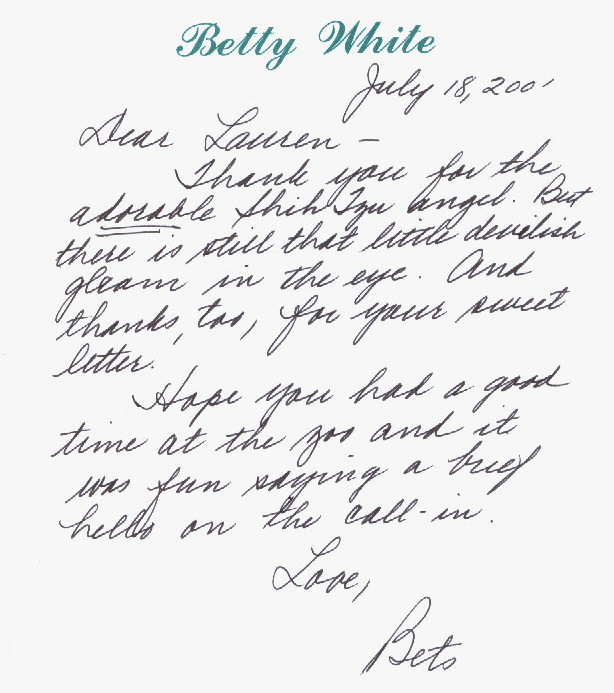 Betty White
July 18, 2001
Dear Lauren -
Thank you for the
adorable Shih Tzu angel. But
there is still that little devilish
gleam in the eye. And
thanks, too, for your sweet
letter.
Hope you had a good
time at the zoo and it
was fun saying a brief
hello on the call-in.
Love,
Bets